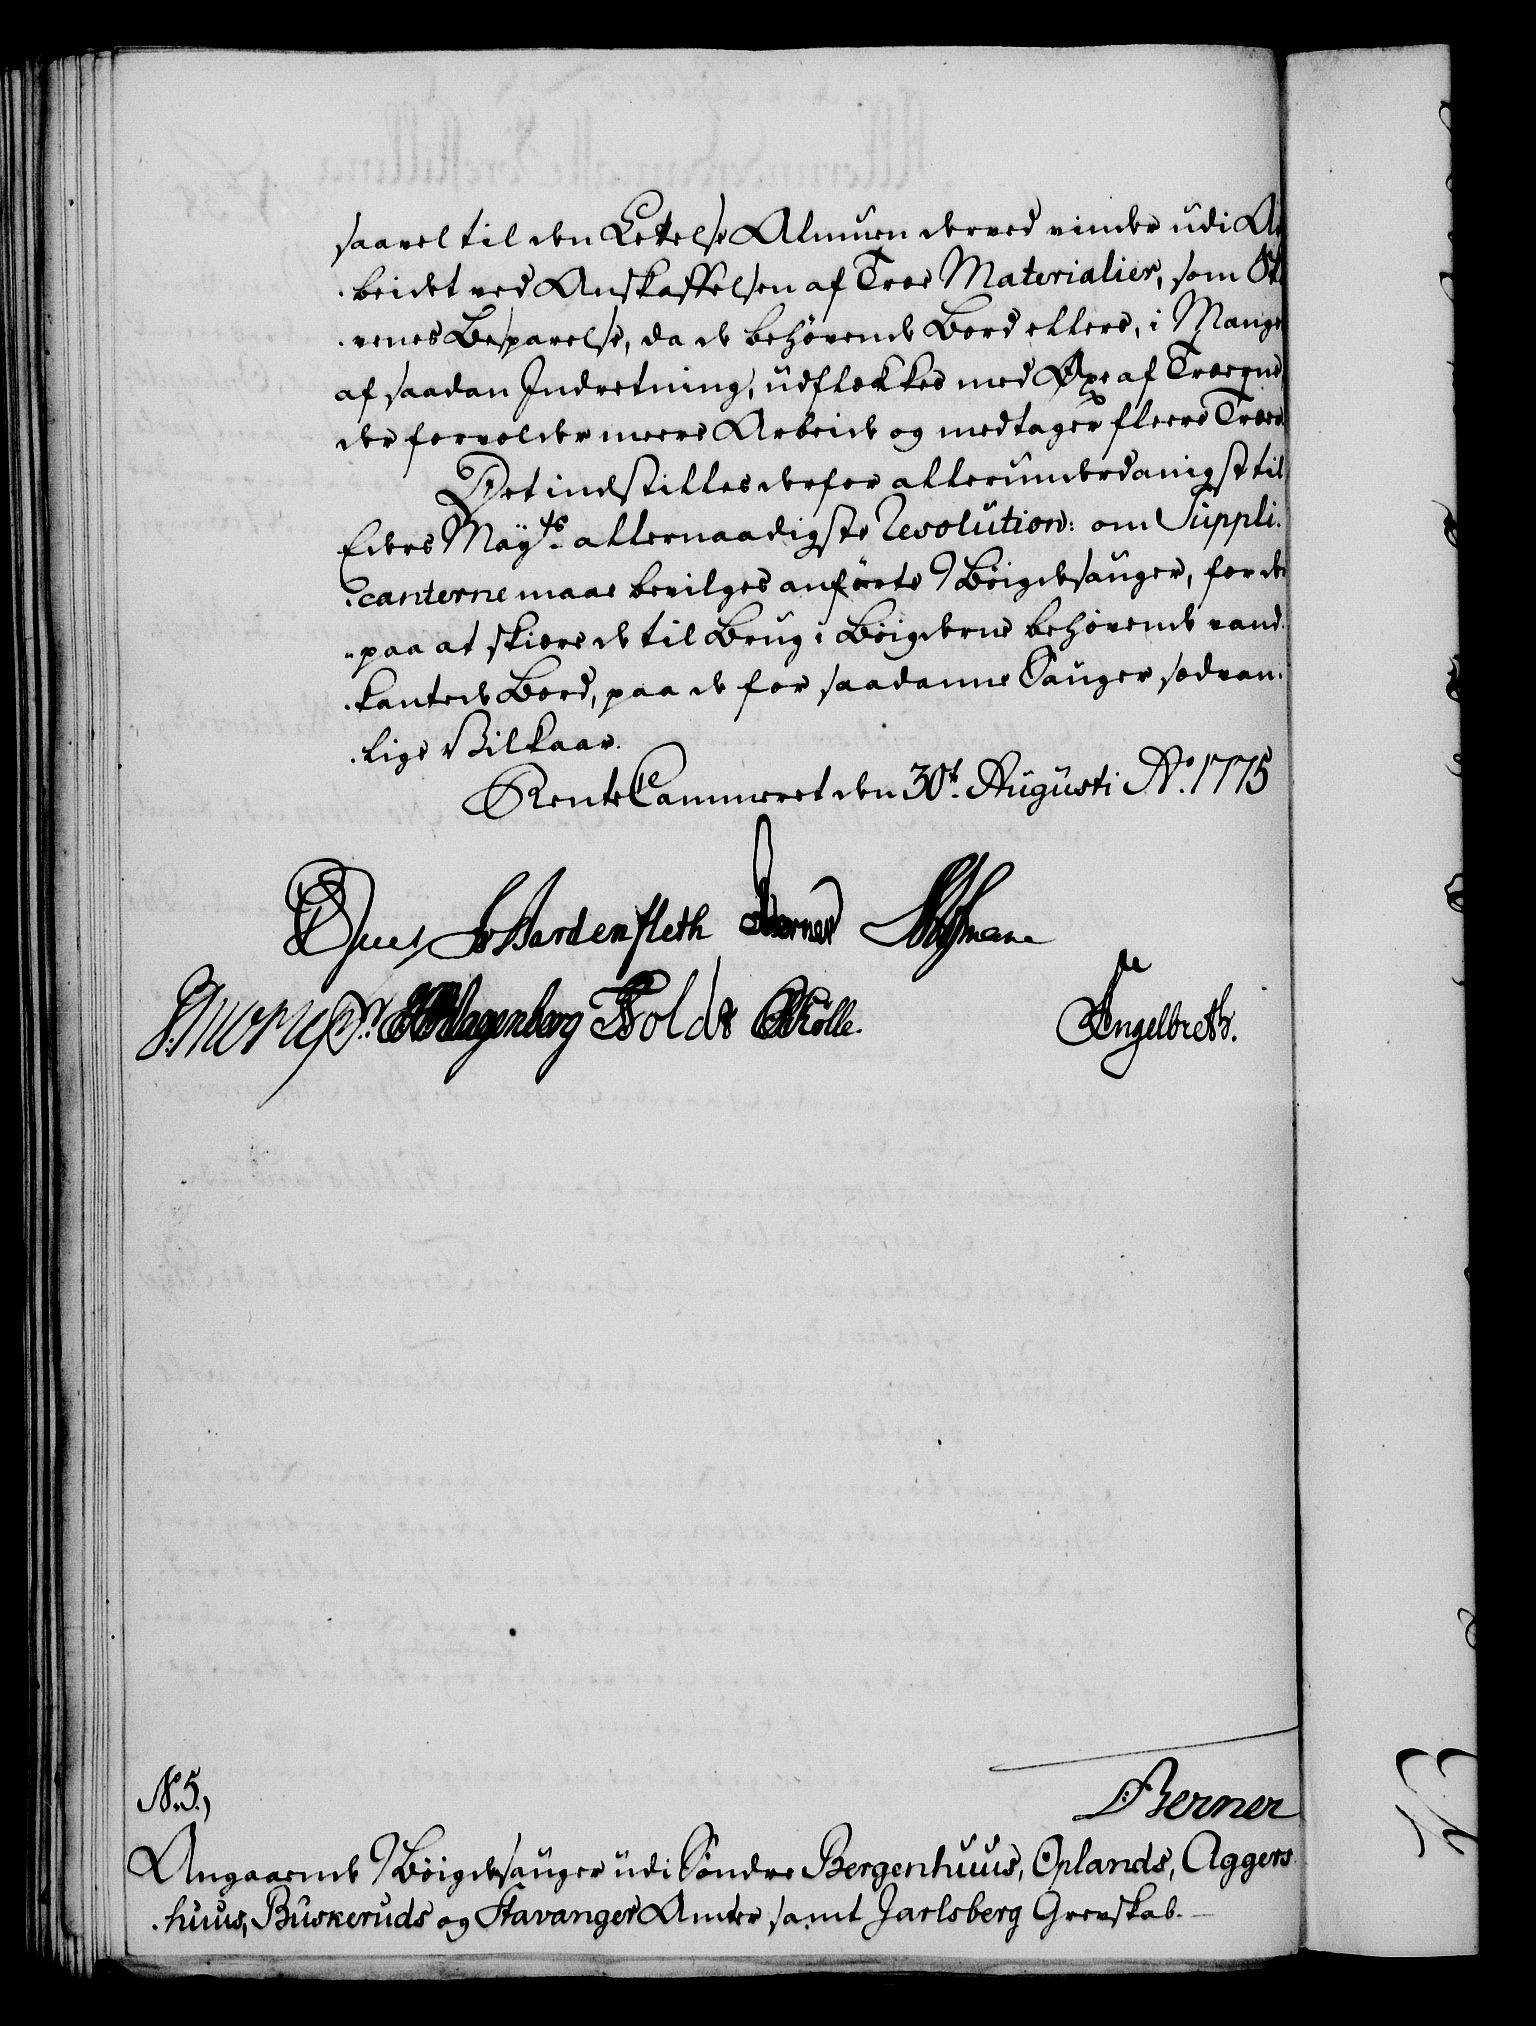 saavel til den Lettelse Almuen derved vinder udi Ar
beidet ved Anskaffelsen af Træe Materialier, som Sko
venes Besparelse, da de behøvende Bord ellers, i Mangel
af saadan Indretning, udflækkes med Øxe af Træerne
der forvolder meere Arbeide og medtager fleere Træer
Det indstilles derfor allerunderdanigst til
Eders Mayts. allernaadigste Resolution: om Suppli-
canterne maae bevilges anførte 9 Böigdesauger, for der
paa at skiære de til Brug i Böigderne behøvende vand-
kantede Bord, paa de for saadanne Sauger sædvan-
lige Vilkaar.
RenteCammeret den 30t. Augusti Ao. 1775
Juel Hardenfleth Berner
Klagenberg Holdt Rølle. Engelbreth.
No. 5., Berner
Angaaende 9 Böigdesauger udi Söndre Bergenhuus, Oplands, Aggers-
huus, Buskeruds og Stavanger Amter samt Jarlsberg Grevskab.